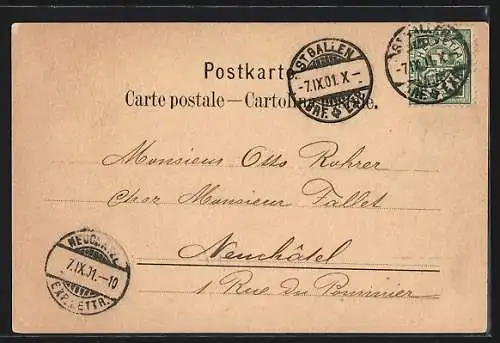 Postkarte
Carte postale — Cartolina postale.
ST. GALLEN
-7.IX.01.X-
BRF. EXP.
ST. GALLEN
-7.IX.01.X-
BRF. EXP.
Monsieur Otto Rohrer
Chez Monsieur Fallet
Neuchâtel
1 Rue du Pommier
NEUCHATEL
7.IX.01.-10
EXP. LETTR.